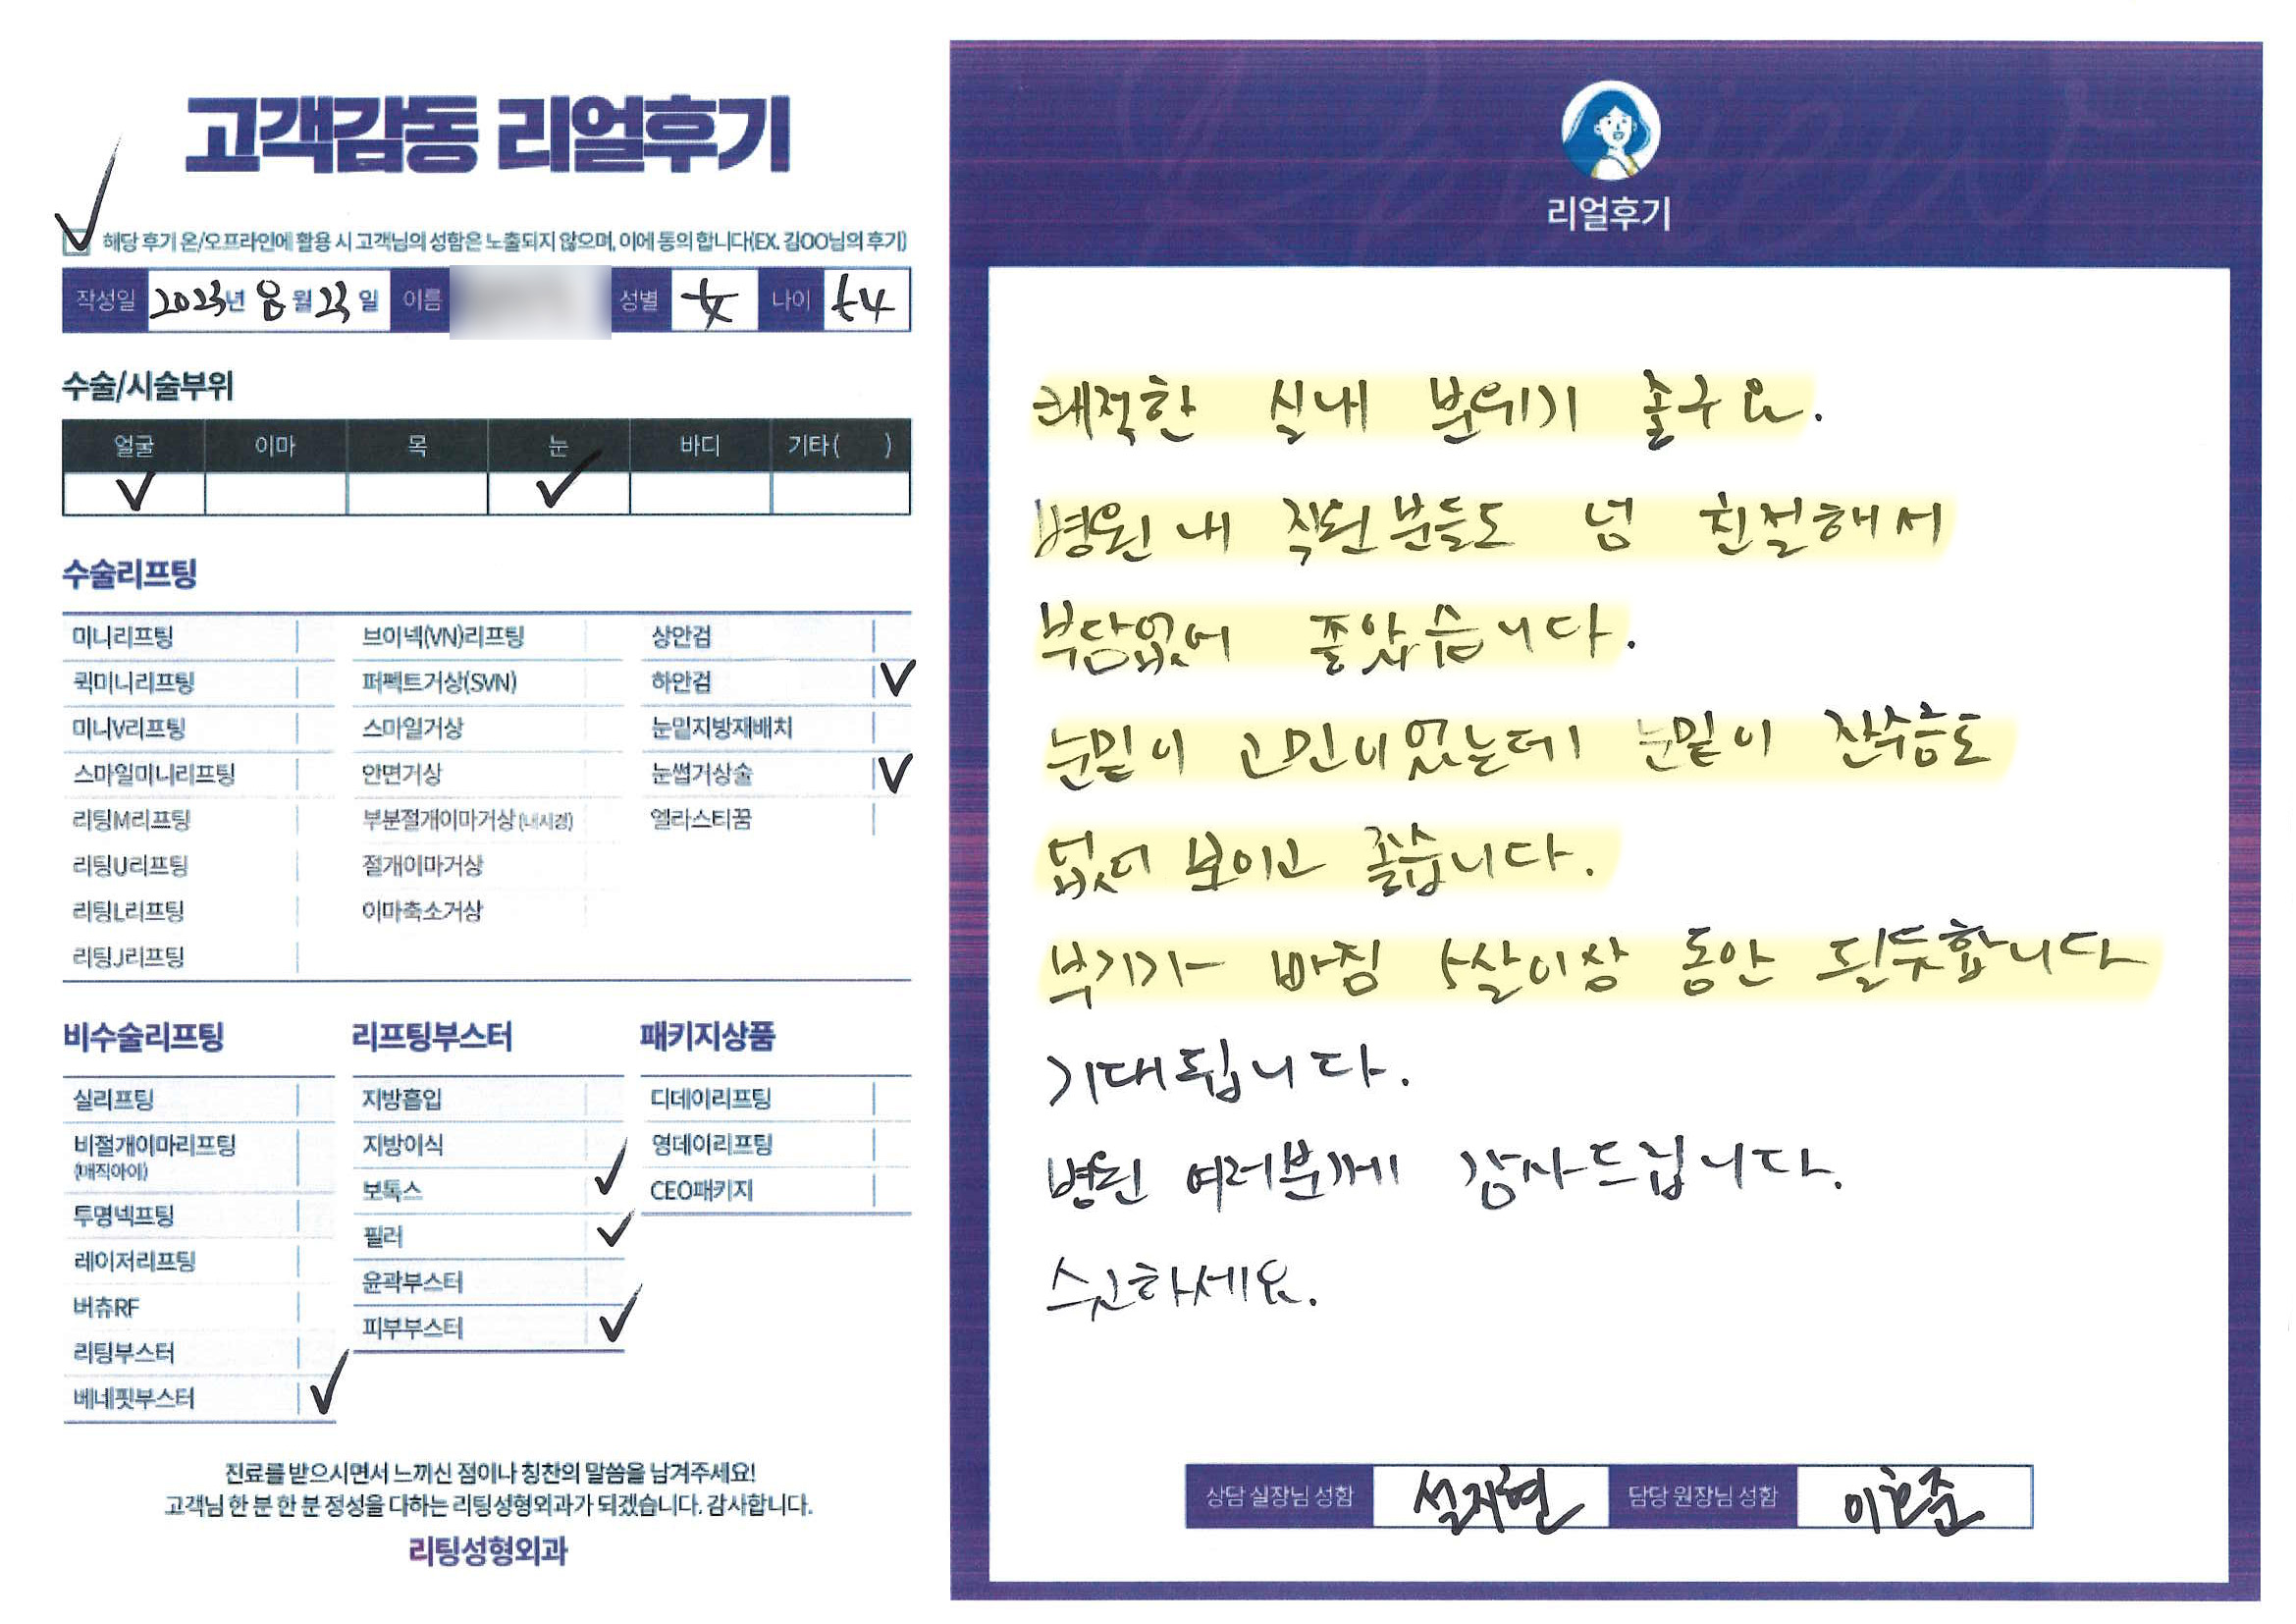 고객감동 리얼후기
해당 후기 온/오프라인에 활용 시 고객님의 성함은 노출되지 않으며, 이에 동의 합니다(EX. 김OO님의 후기)
작성일 2023년 8월 23일 이름 성별 女 나이 54
수술/시술부위
얼굴 이마 목 눈 바디 기타( )
수술리프팅
미니리프팅 브이넥(VN)리프팅 상안검
퀵미니리프팅 퍼펙트거상(SVN) 하안검
미니V리프팅 스마일거상 눈밑지방재배치
스마일미니리프팅 안면거상 눈썹거상술
리팅M리프팅 부분절개이마거상(내시경) 엘라스티꿈
리팅U리프팅 절개이마거상
리팅L리프팅 이마축소거상
리팅J리프팅
비수술리프팅 리프팅부스터 패키지상품
실리프팅 지방흡입 디데이리프팅
비절개이마리프팅 지방이식 영데이리프팅
(매직아이)
보톡스 CEO패키지
투명넥프팅 필러
레이저리프팅 윤곽부스터
버츄RF 피부부스터
리팅부스터
베네핏부스터
진료를 받으시면서 느끼신 점이나 칭찬의 말씀을 남겨주세요!
고객님 한 분 한 분 정성을 다하는 리팅성형외과가 되겠습니다. 감사합니다.
리팅성형외과
리얼후기
쾌적한 실내 분위기 좋구요.
병원 내 직원분들도 넘 친절해서
부담없어 좋았습니다.
눈밑이 고민이었는데 눈밑이 잔주름도
없어 보이고 좋습니다.
부기가 빠짐 5살이상 동안 될듯합니다
기대됩니다.
병원 여러분께 감사드립니다.
수고하세요.
상담 실장님 성함 설지현 담당 원장님 성함 이호준